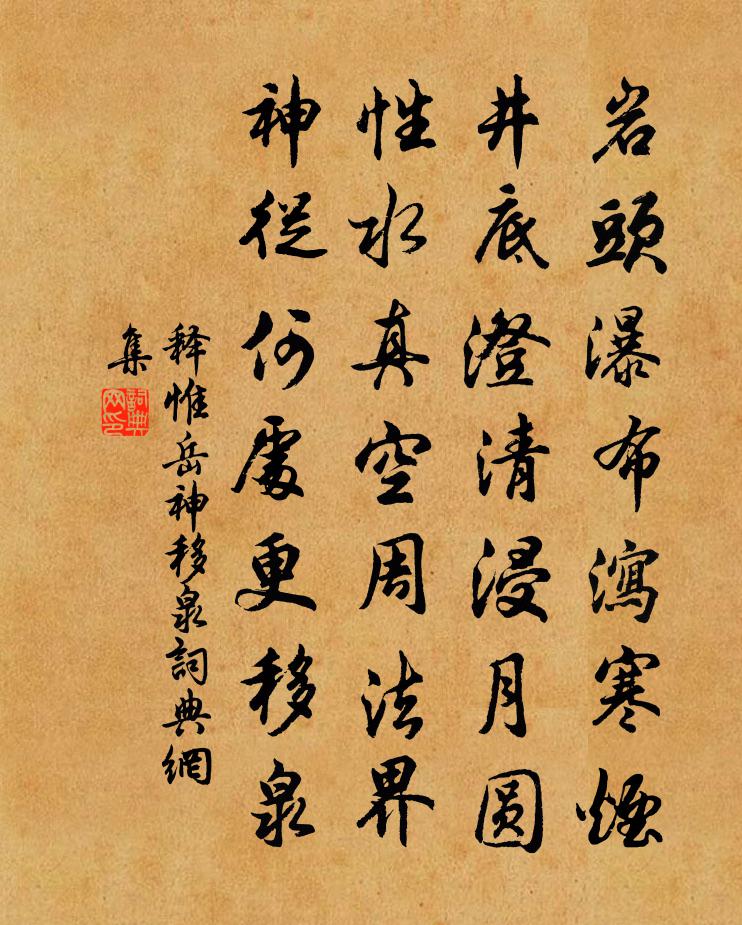 岩頭瀑布瀉寒煙
井底澄清浸月圓
性水真空周法界
神從何處更移泉
釋惟岳神移泉詞典網
集
詞典
网印